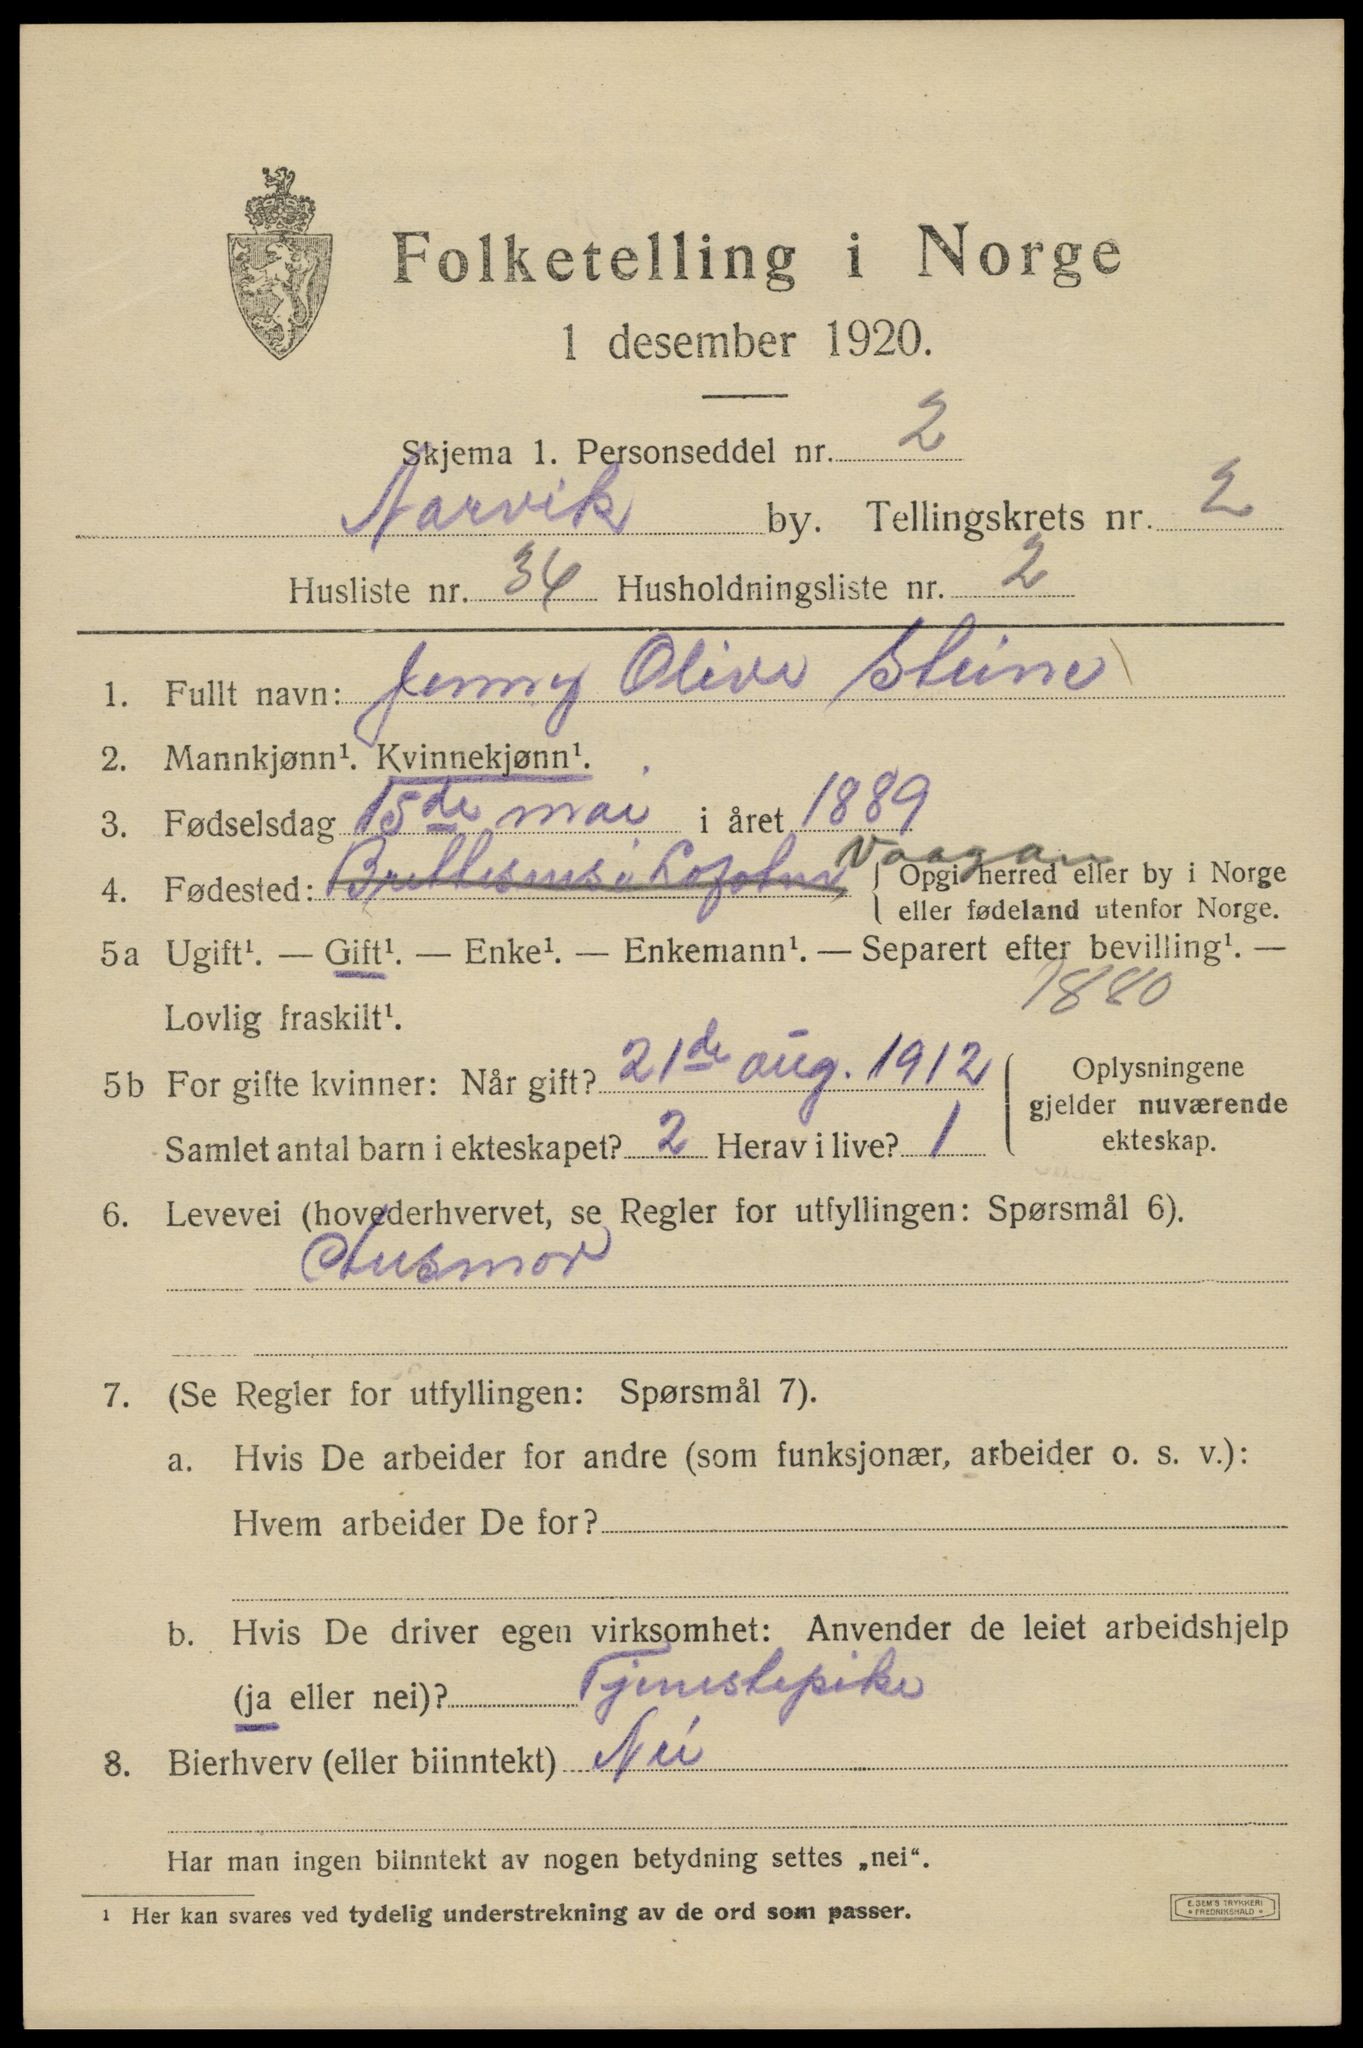 Folketelling i Norge
1 desember 1920.
Skjema 1. Personseddel nr. 2
Narvik by. Tellingskrets nr. 2
Husliste nr. 34 Husholdningsliste nr. 2
1. Fullt navn: Jenny Olive Steine
2. Mannkjønn¹. Kvinnekjønn¹.
3. Fødselsdag 15de mai i året 1889
Vaagan
4. Fødested: Brettesnes i Lofoten { Opgi herred eller by i Norge
eller fødeland utenfor Norge.
5a Ugift¹. — Gift¹. — Enke¹. — Enkemann¹. — Separert efter bevilling¹. —
1880
Lovlig fraskilt¹.
5b For gifte kvinner: Når gift? 21de aug. 1912
Samlet antal barn i ekteskapet? 2 Herav i live? 1
Oplysningene
gjelder nuværende
ekteskap.
6. Levevei (hovederhvervet, se Regler for utfyllingen: Spørsmål 6).
Husmor
7. (Se Regler for utfyllingen: Spørsmål 7).
a. Hvis De arbeider for andre (som funksjonær, arbeider o. s. v.):
Hvem arbeider De for?
b. Hvis De driver egen virksomhet: Anvender de leiet arbeidshjelp
(ja eller nei)? Tjenestepike
8. Bierhverv (eller biinntekt) Nei
Har man ingen biinntekt av nogen betydning settes „nei“.
¹ Her kan svares ved tydelig understrekning av de ord som passer.
E. SEM'S TRYKKERI
* FREDRIKSHALD *